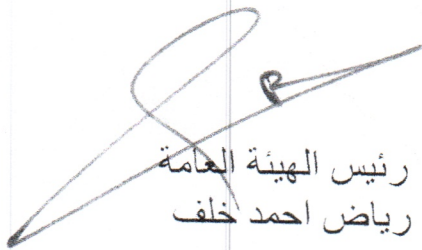 رئيس الهيئة العامة
رياض احمد خلف